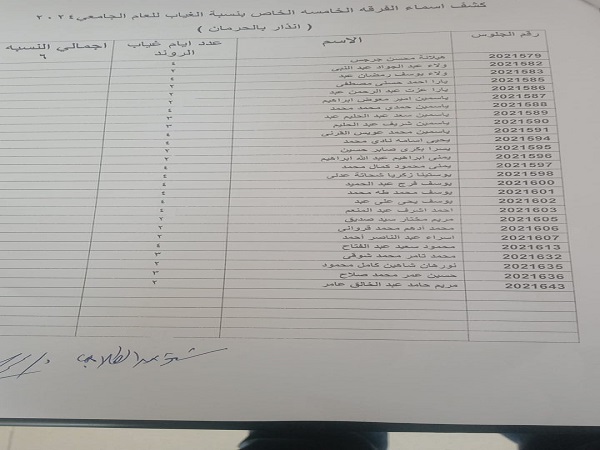 كشف اسماء الفرقه الخامسه الخاص بنسبة الغياب للعام الجامعي ٢٠٢٤
( انذار بالحرمان )
رقم الجلوس الاسم عدد ايام غياب الروند اجمالي النسبه ٦
2021579 هيلانة محسن جرجس ٤
2021582 ولاء عبد الجواد عبد النبى ٢
2021583 ولاء يوسف رمضان عبد ٤
2021585 يارا احمد حسنى مصطفى ٤
2021586 يارا عزت عبد الرحمن عبد ٢
2021587 ياسمين امير معوض ابراهيم ٢
2021588 ياسمين حمدى محمد محمد ٤
2021589 ياسمين سعد عبد الحليم عبد ٣
2021590 ياسمين شريف عبد الحليم ٣
2021591 ياسمين محمد عويس القرنى ٤
2021594 يحيى اسامه نادى محمد ٤
2021595 يسرا بكرى صابر حسين ٢
2021596 يمنى ابراهيم عبد الله ابراهيم ٢
2021597 يمنى محمود كمال محمد ٤
2021598 يوستينا زكريا شحاتة عدلى ٤
2021600 يوسف فرج عبد الحميد ٤
2021601 يوسف محمد طه محمد ٤
2021602 يوسف يحى على عبد ٤
2021603 احمد اشرف عبد المنعم ٤
2021605 مريم مختار سيد صديق ٢
2021606 محمد ادهم محمد فروانى ٢
2021607 اسراء عبد الناصر أحمد ٢
2021613 محمود سعيد عبد الفتاح ٤
2021632 محمد تامر محمد شوقى ٣
2021635 نورهان شاهين كامل محمود ٢
2021636 حسين عمر محمد صلاح ٣
2021643 مريم حامد عبد الخالق عامر ٢